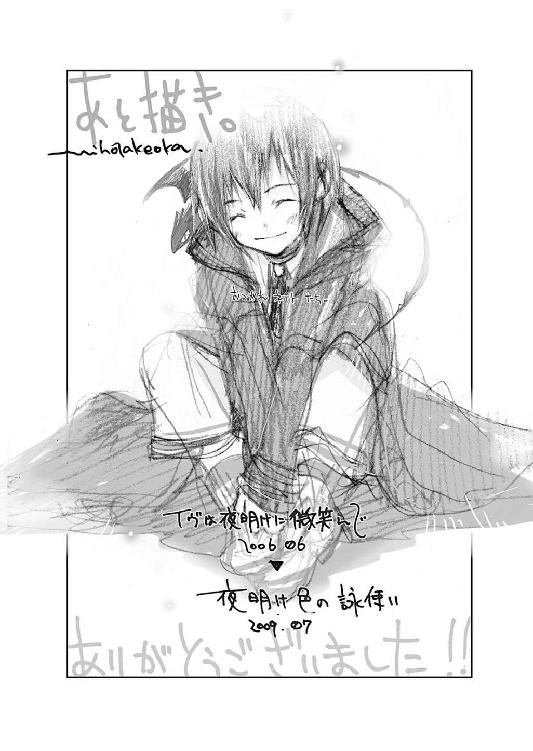 あと描き。
miho takeoka.
イヴは夜明けに微笑んで
2006 06
▼
夜明け色の詠使い
2009.07
ありがとうございました!!